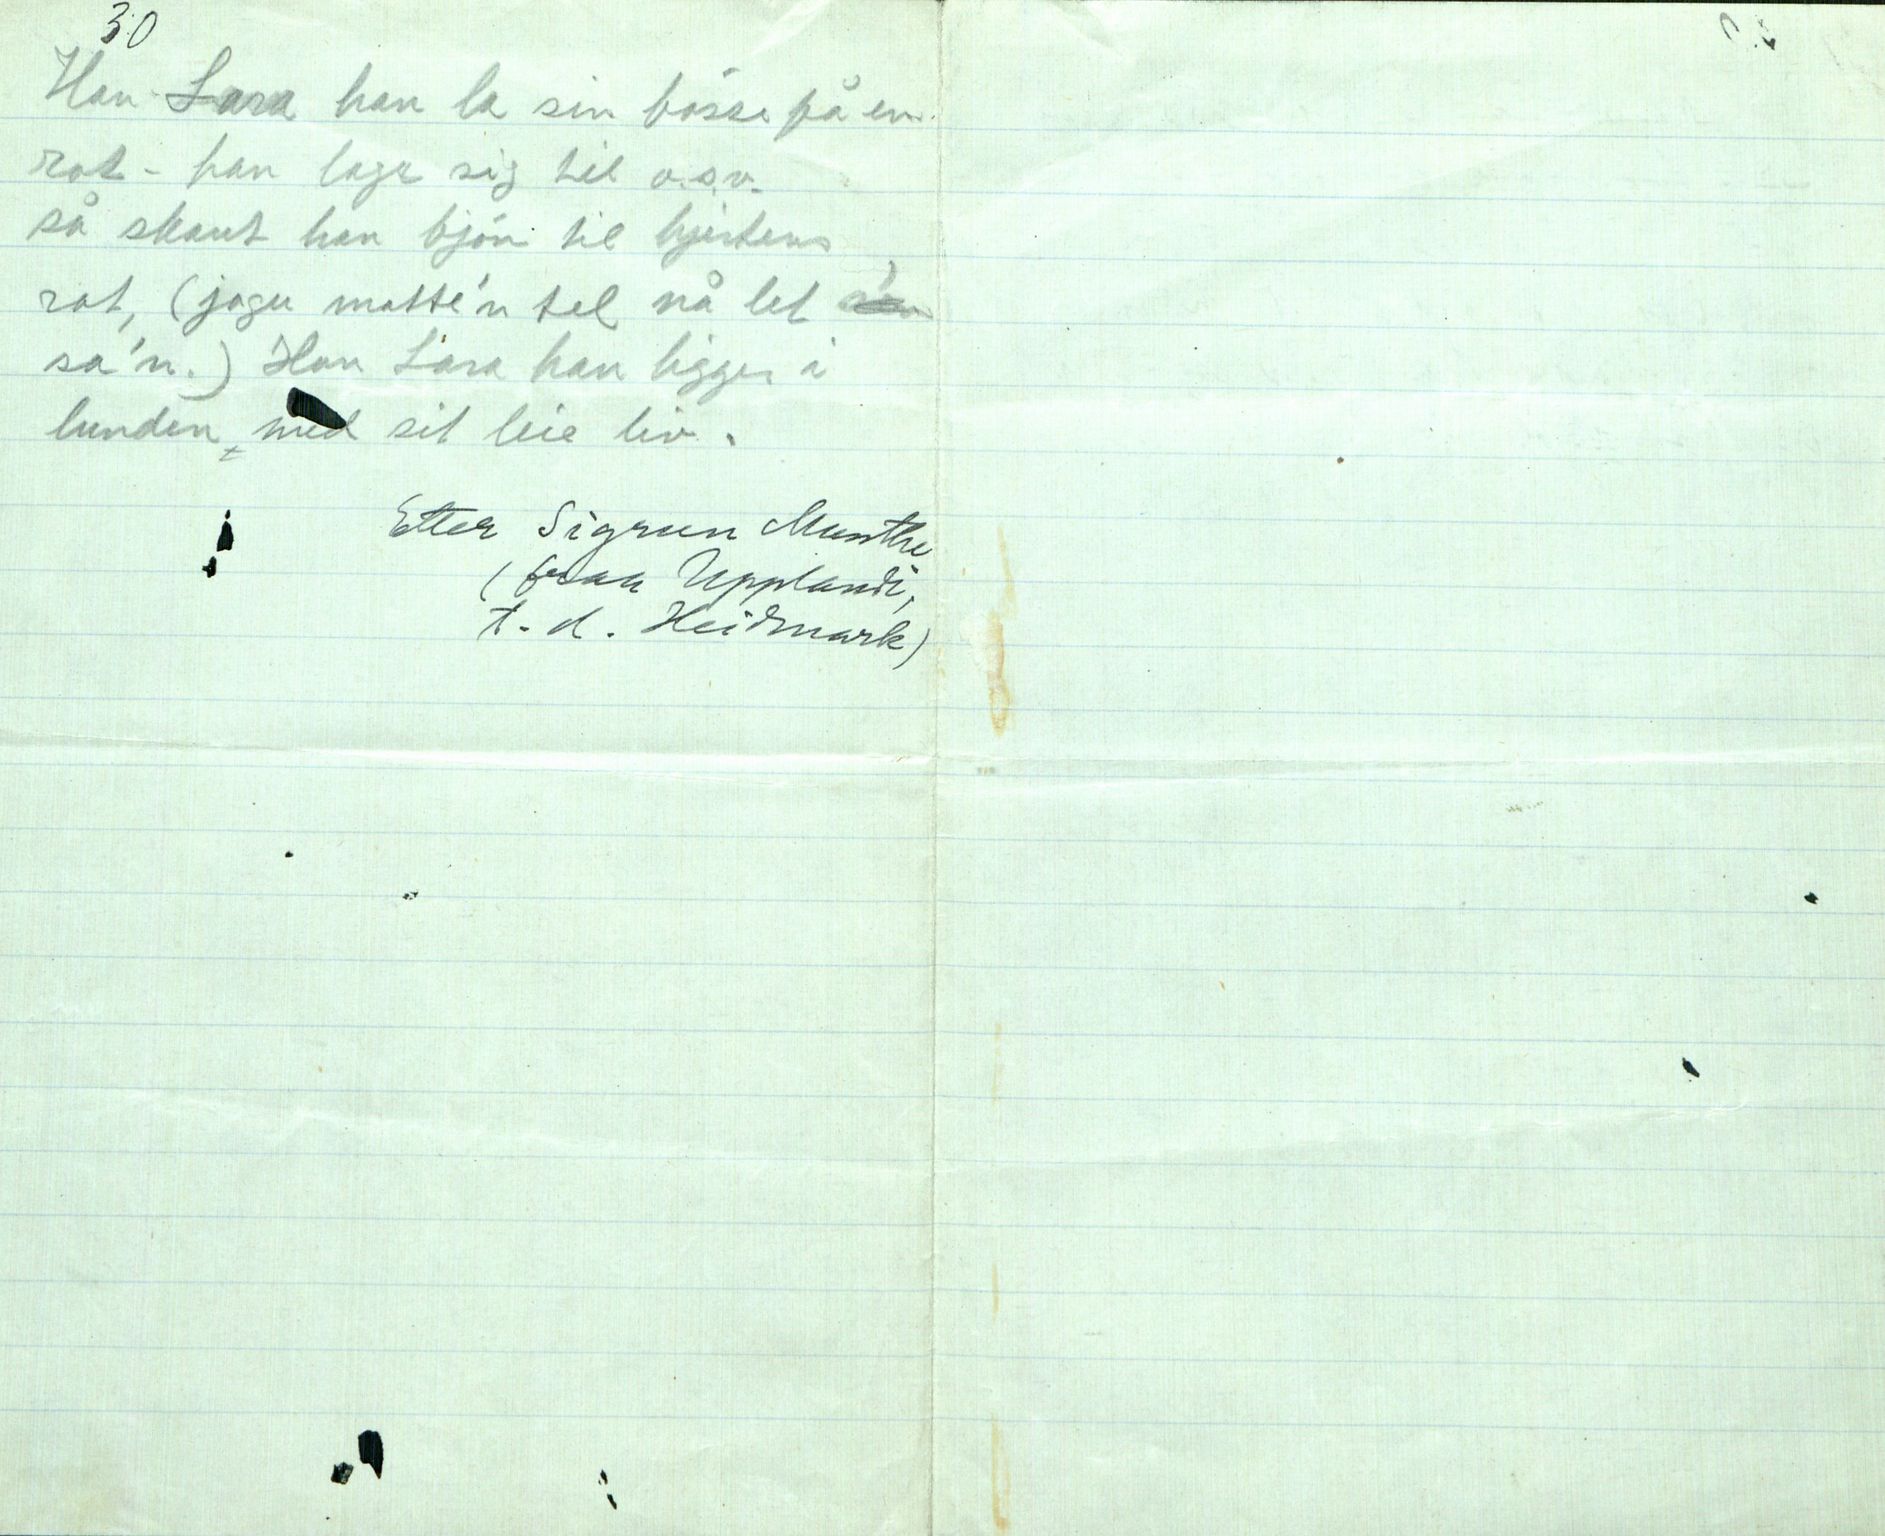 30
Han Lara han la sin bösse på en
rot - han lage sig til o.s.v.
så skaut han bjön til hjertens
rot, (jagu matte'n tel nå let
sa'n.) Han Lara han ligger i
lunden, med sit leie liv.
Etter Sigrun Munthe
(fraa Upplandi,
t. d. Heidmark)